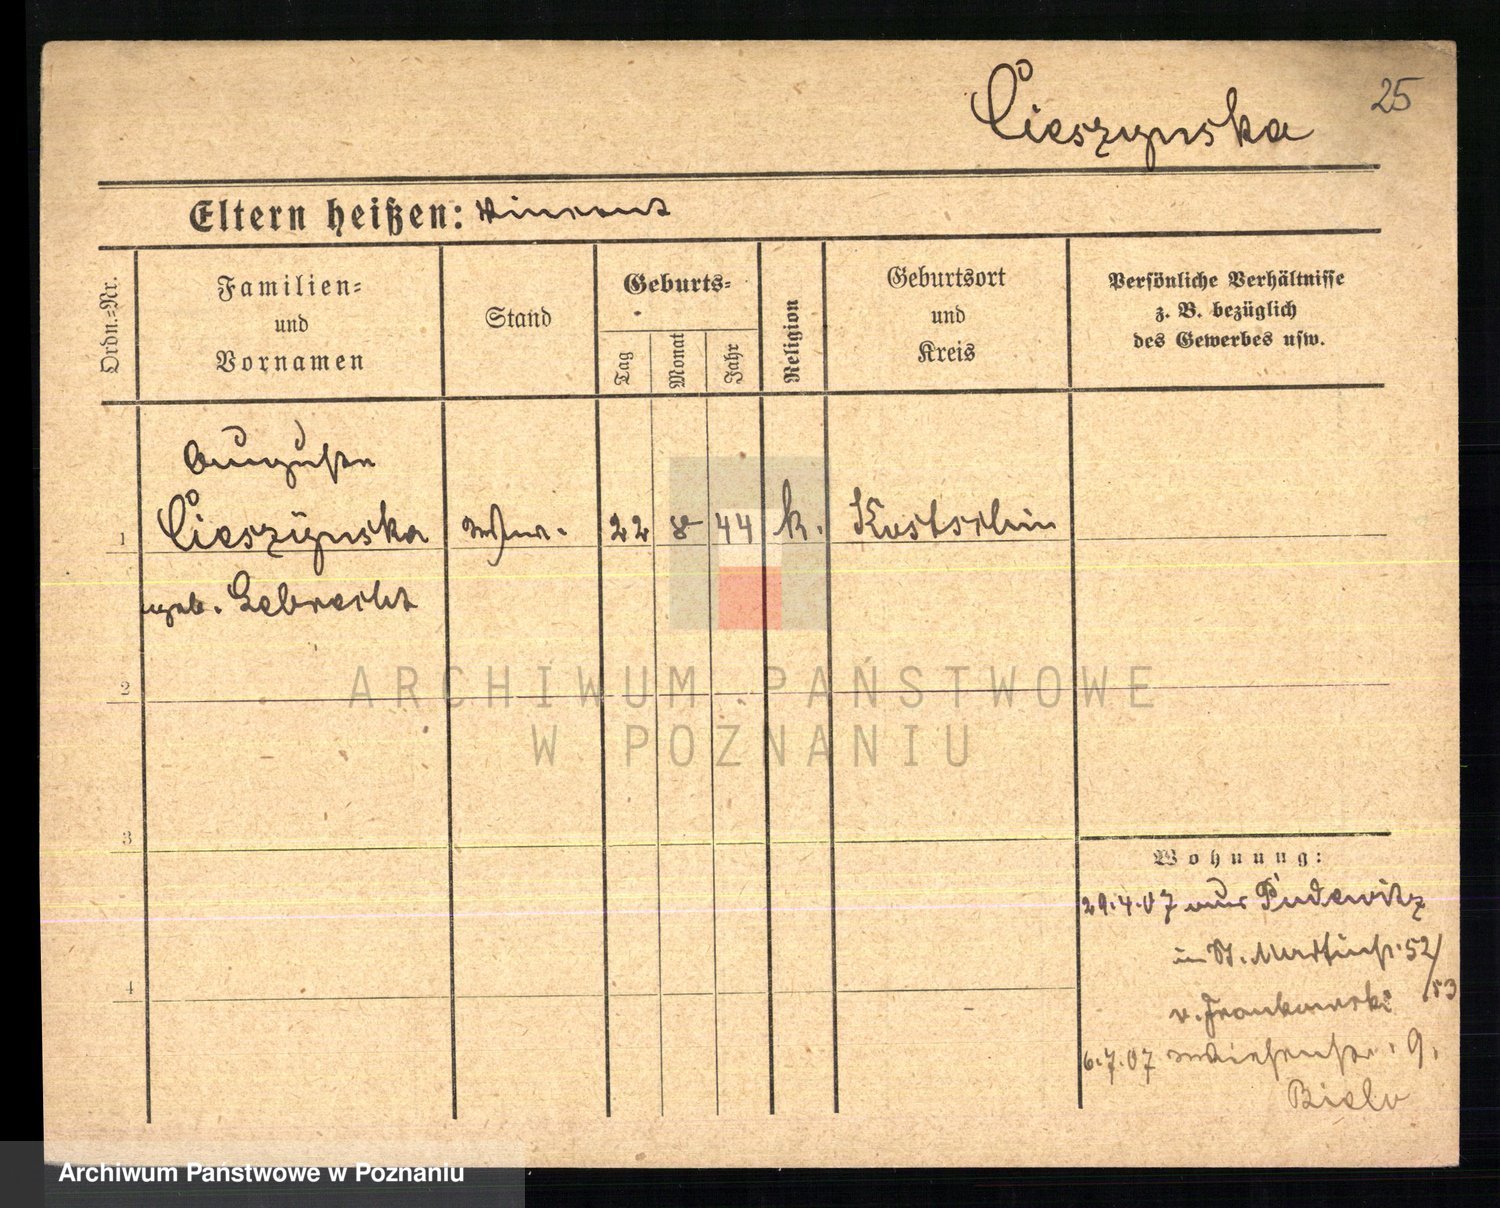 25
Cieszynska
Eltern heißen: Vincent
Ordn.=Nr.
Familien=
und
Vornamen
Stand
Geburts=
Tag
Monat
Jahr
Religion
Geburtsort
und
Kreis
Persönliche Verhältnisse
z. B. bezüglich
des Gewerbes usw.
Auguste
1 Cieszynska Ww. 22 8 44 k. Kostschin
geb. Gebrecht
2
ARCHIWUM PAŃSTWOWE
W POZNANIU
3
Wohnung:
29.4.07 aus Pudewitz
in St. Martinstr. 52/
53
4
v. Frankowski
6.7.07 Wiesenstr. 9.
Archiwum Państwowe w Poznaniu